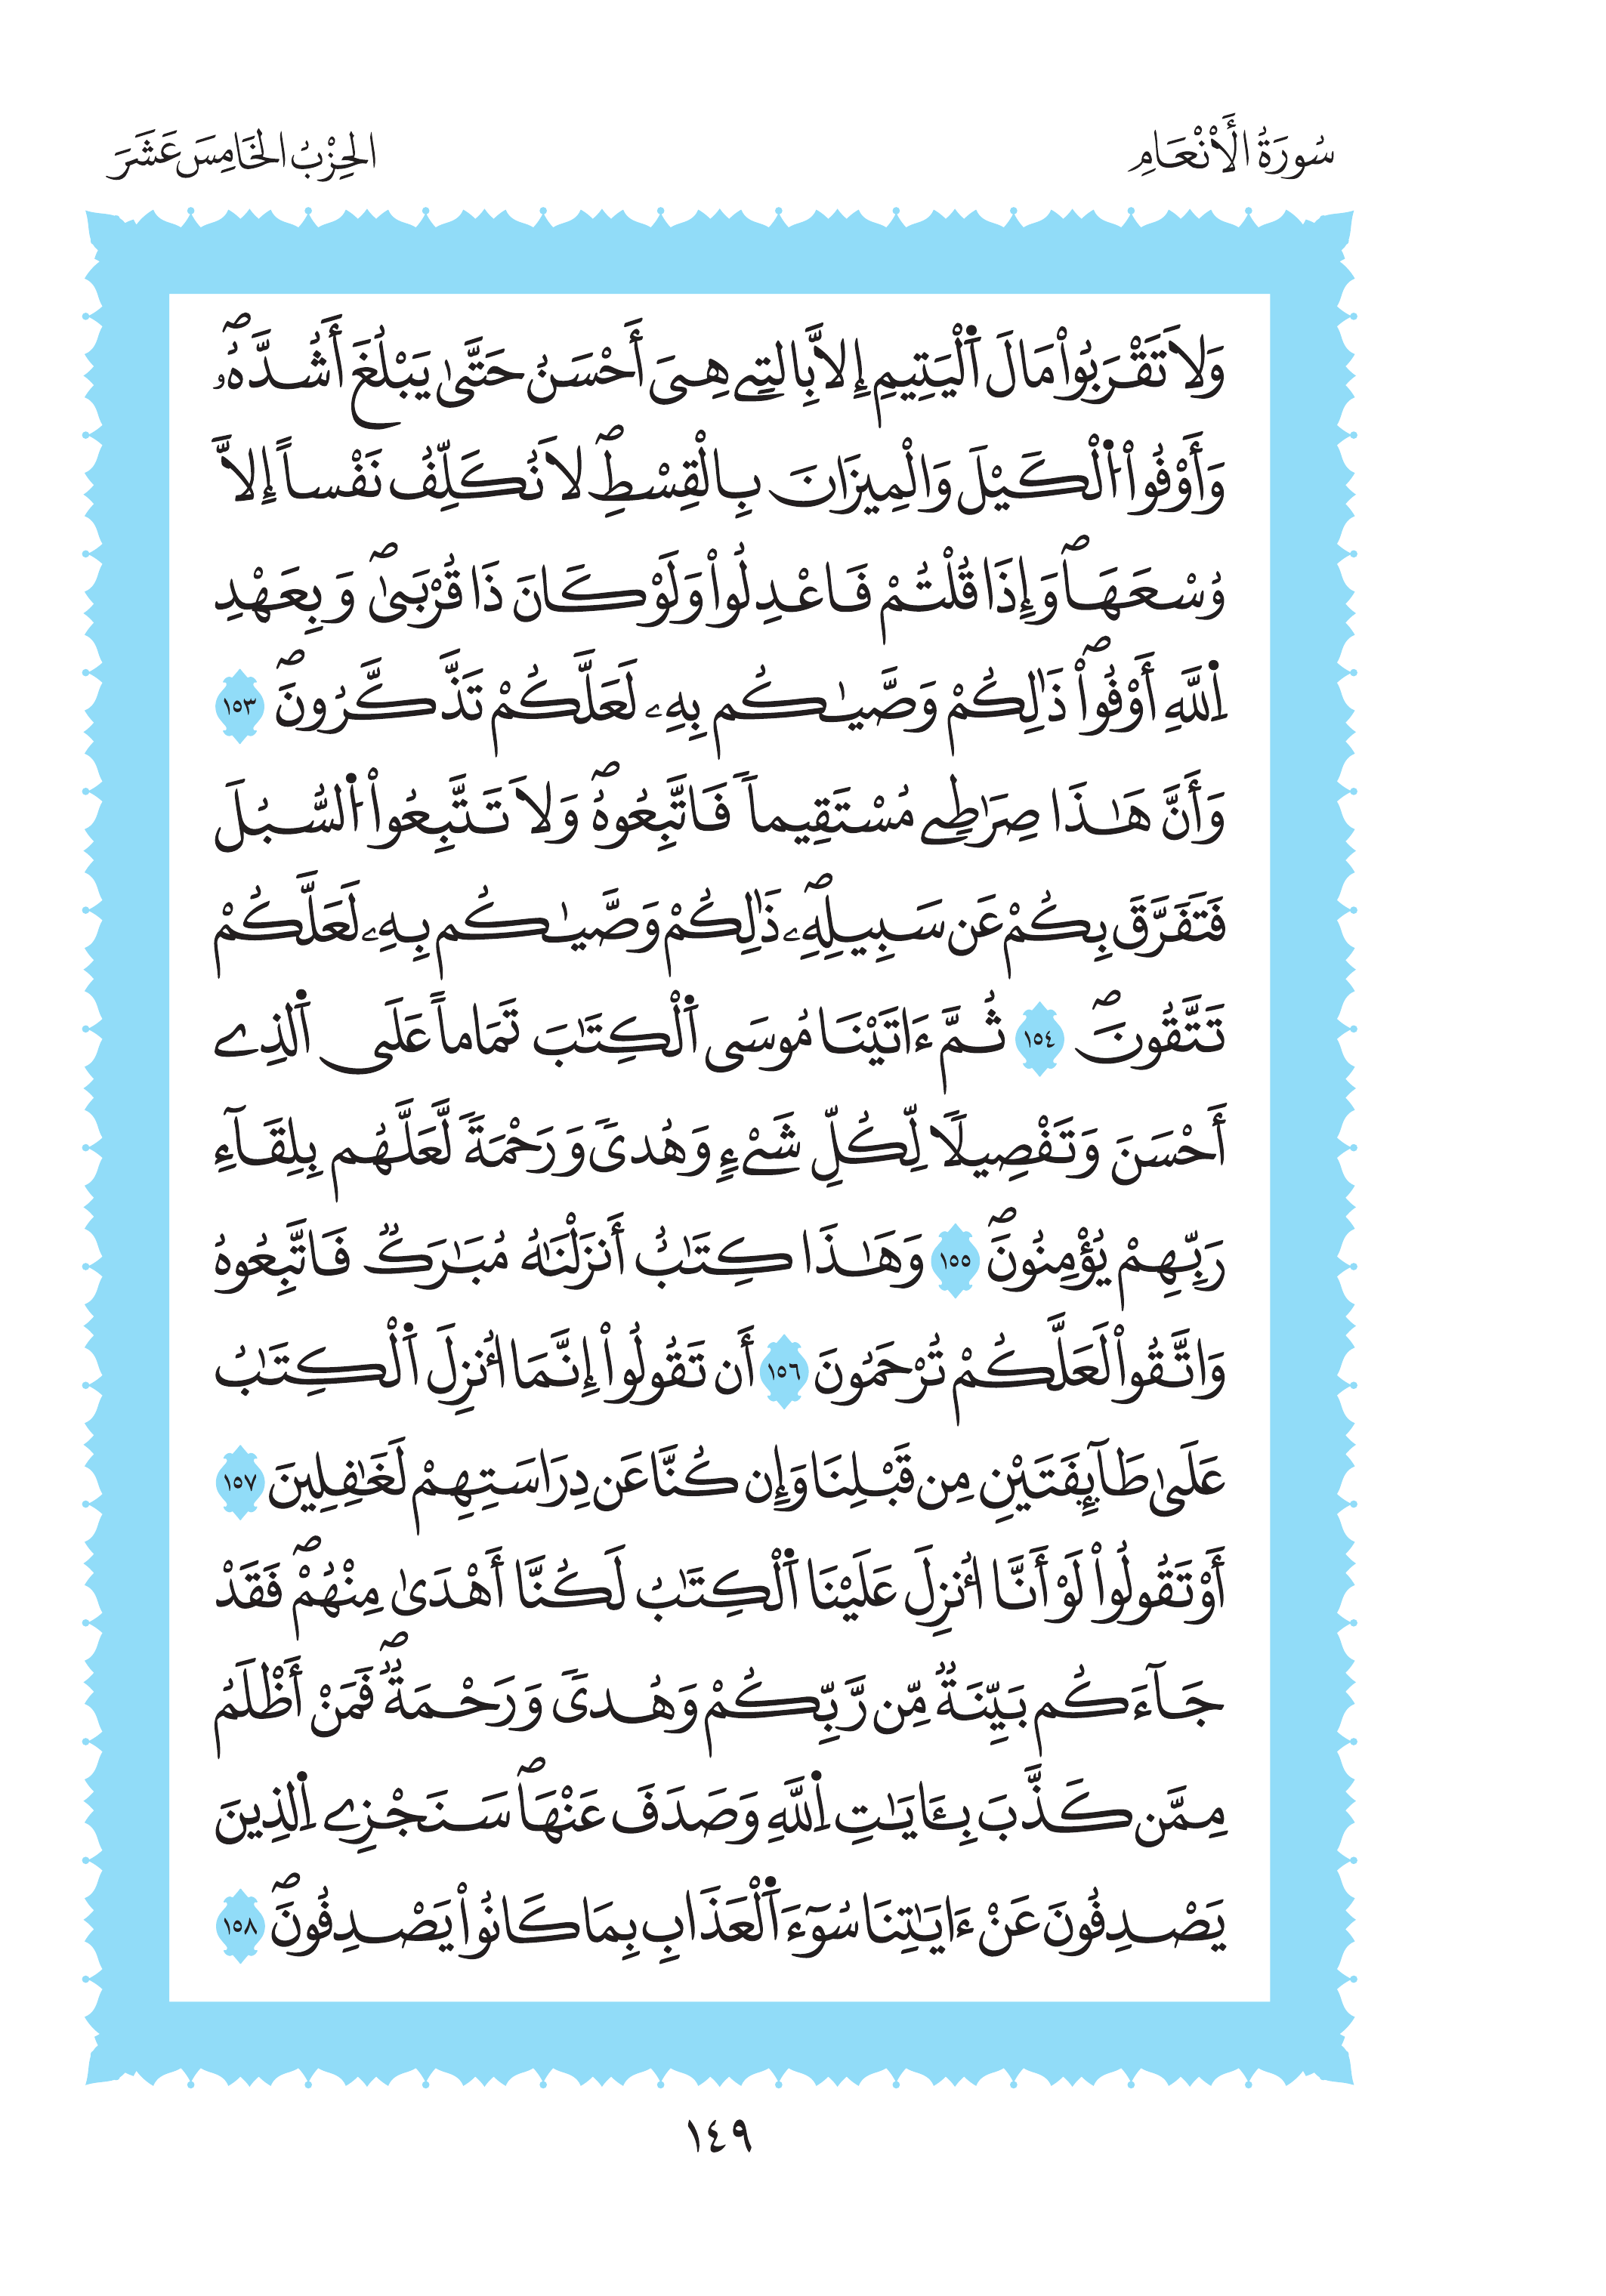 سُورَةُ الْأَنْعَامِ
الحِزْبُ الخَامِسَ عَشَرَ
وَلَا تَقْرَبُواْ مَالَ اَ۬لْيَتِيمِ إِلَّا بِالتِے هِيَ أَحْسَنُ حَتَّىٰ يَبْلُغَ أَشُدَّهُۥۖ
وَأَوْفُواْ اُ۬لْكَيْلَ وَالْمِيزَانَ بِالْقِسْطِۖ لَا نُكَلِّفُ نَفْساً إِلَّا
وُسْعَهَاۖ وَإِذَا قُلْتُمْ فَاعْدِلُواْ وَلَوْ كَانَ ذَا قُرْبَىٰۖ وَبِعَهْدِ
اِ۬للَّهِ أَوْفُواْۖ ذَٰلِكُمْ وَصَّيٰكُم بِهِۦ لَعَلَّكُمْ تَذَّكَّرُونَۖ ١٥٣
وَأَنَّ هَٰذَا صِرَٰطِے مُسْتَقِيماٗ فَاتَّبِعُوهُۖ وَلَا تَتَّبِعُواْ اُ۬لسُّبُلَ
فَتَفَرَّقَ بِكُمْ عَن سَبِيلِهِۦۖ ذَٰلِكُمْ وَصَّيٰكُم بِهِۦ لَعَلَّكُمْ
تَتَّقُونَۖ ١٥٤ ثُمَّ ءَاتَيْنَا مُوسَى اَ۬لْكِتَٰبَ تَمَاماً عَلَى اَ۬لذِے
أَحْسَنَ وَتَفْصِيلاٗ لِّكُلِّ شَےْءٖ وَهُدىٗ وَرَحْمَةٗ لَّعَلَّهُم بِلِقَآءِ
رَبِّهِمْ يُؤْمِنُونَۖ ١٥٥ وَهَٰذَا كِتَٰبٌ أَنزَلْنَٰهُ مُبَٰرَكٞ فَاتَّبِعُوهُ
وَاتَّقُواْ لَعَلَّكُمْ تُرْحَمُونَ ١٥٦ أَن تَقُولُواْ إِنَّمَا أُنزِلَ اَ۬لْكِتَٰبُ
عَلَىٰ طَآئِفَتَيْنِ مِن قَبْلِنَا وَإِن كُنَّا عَن دِرَاسَتِهِمْ لَغَٰفِلِينَ ١٥٧
أَوْ تَقُولُواْ لَوْ أَنَّا أُنزِلَ عَلَيْنَا اَ۬لْكِتَٰبُ لَكُنَّا أَهْدَىٰ مِنْهُمْۖ فَقَدْ
جَآءَكُم بَيِّنَةٞ مِّن رَّبِّكُمْ وَهُدىٗ وَرَحْمَةٞۖ فَمَنْ أَظْلَمُ
مِمَّن كَذَّبَ بِـَٔايَٰتِ اِ۬للَّهِ وَصَدَفَ عَنْهَاۖ سَنَجْزِے اِ۬لذِينَ
يَصْدِفُونَ عَنْ ءَايَٰتِنَا سُوٓءَ اَ۬لْعَذَابِ بِمَا كَانُواْ يَصْدِفُونَۖ ١٥٨
١٤٩